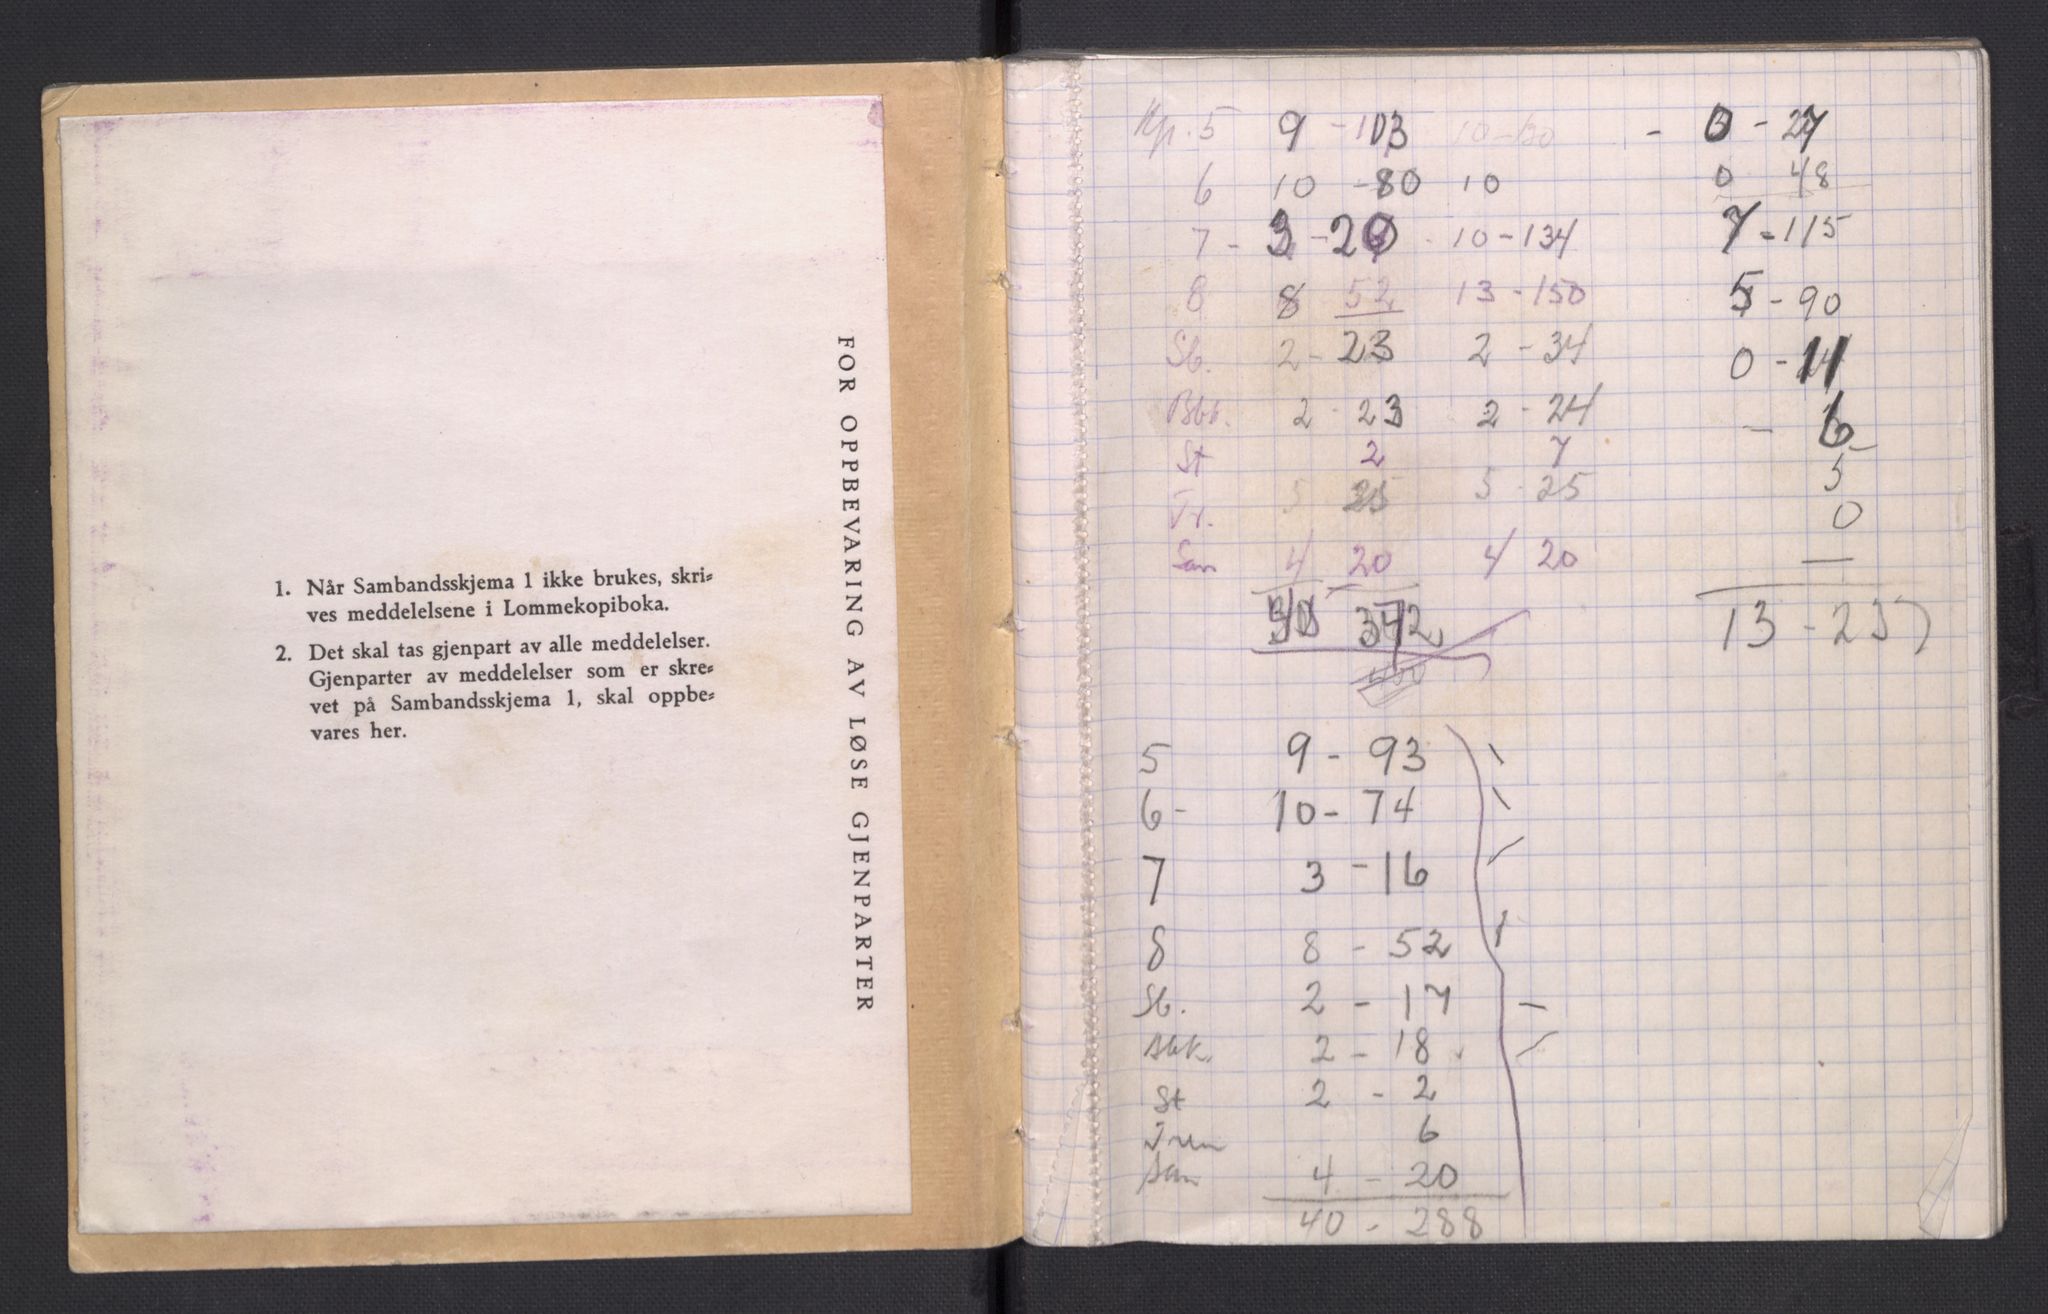 FOR OPPBEVARING AV LØSE GJENPARTER
1. Når Sambandsskjema 1 ikke brukes, skri=
ves meddelelsene i Lommekopiboka.
2. Det skal tas gjenpart av alle meddelelser.
Gjenparter av meddelelser som er skre=
vet på Sambandsskjema 1, skal oppbe=
vares her.
Kp. 5 9 - 103 10 - - 0 - 27
6 10 - 80 10 0 48
7 - 3 - 20 - 10 - 134 7 - 115
8 8 52 13 - 150 5 - 90
Sb. 2 - 23 2 - 34 0 - 11
Bbk. 2 - 23 2 - 24 - 6
St 2 7 5
Tr. 5 25 5 - 25 0
San 4 20 4 20 —
372 13 - 237
5 9 - 93
6 - 10 - 74
7 3 - 16
8 8 - 52
Sb. 2 - 17
Bbk. 2 - 18
St 2 - 2
Tren 6
San 4 - 20
40 - 288